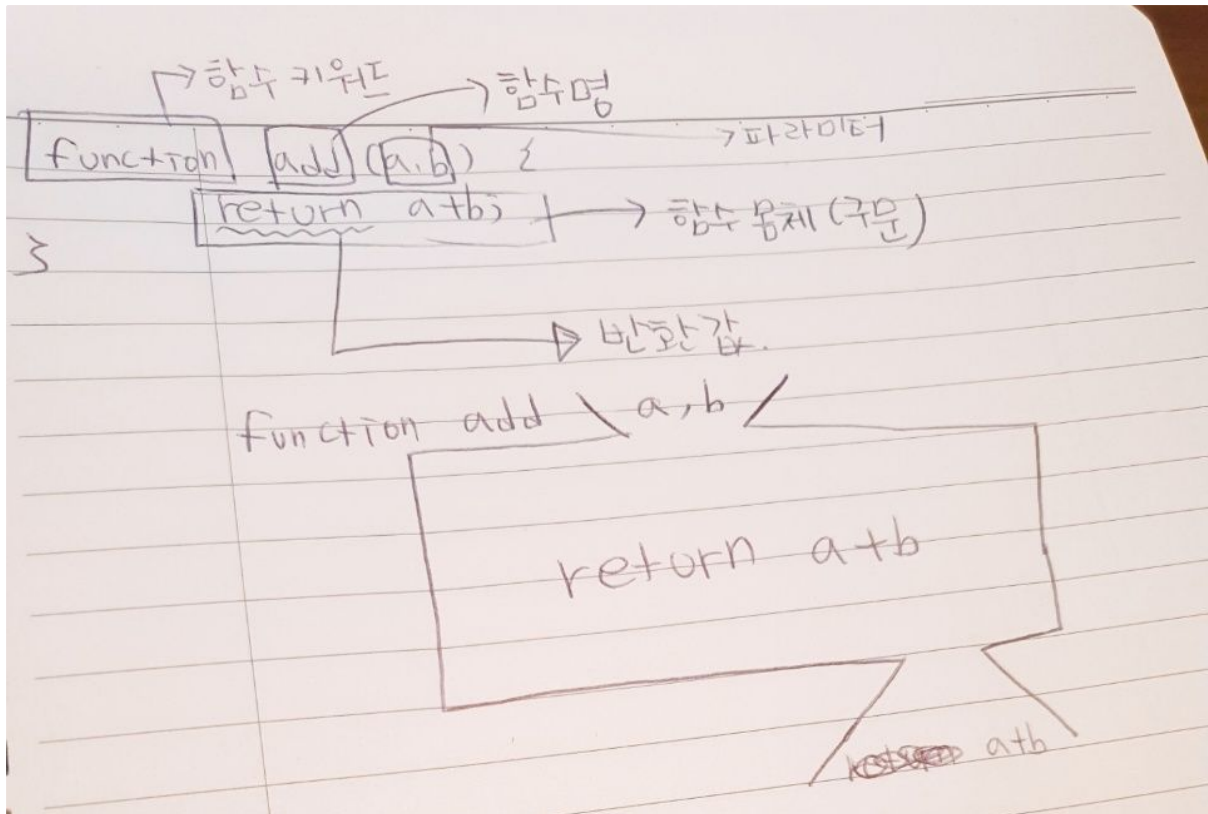 함수 키워드 함수명
function add (a,b) { 파라미터
return a+b; 함수 몸체 (구문)
}
반환값.
function add \ a, b /
return a+b
a+b